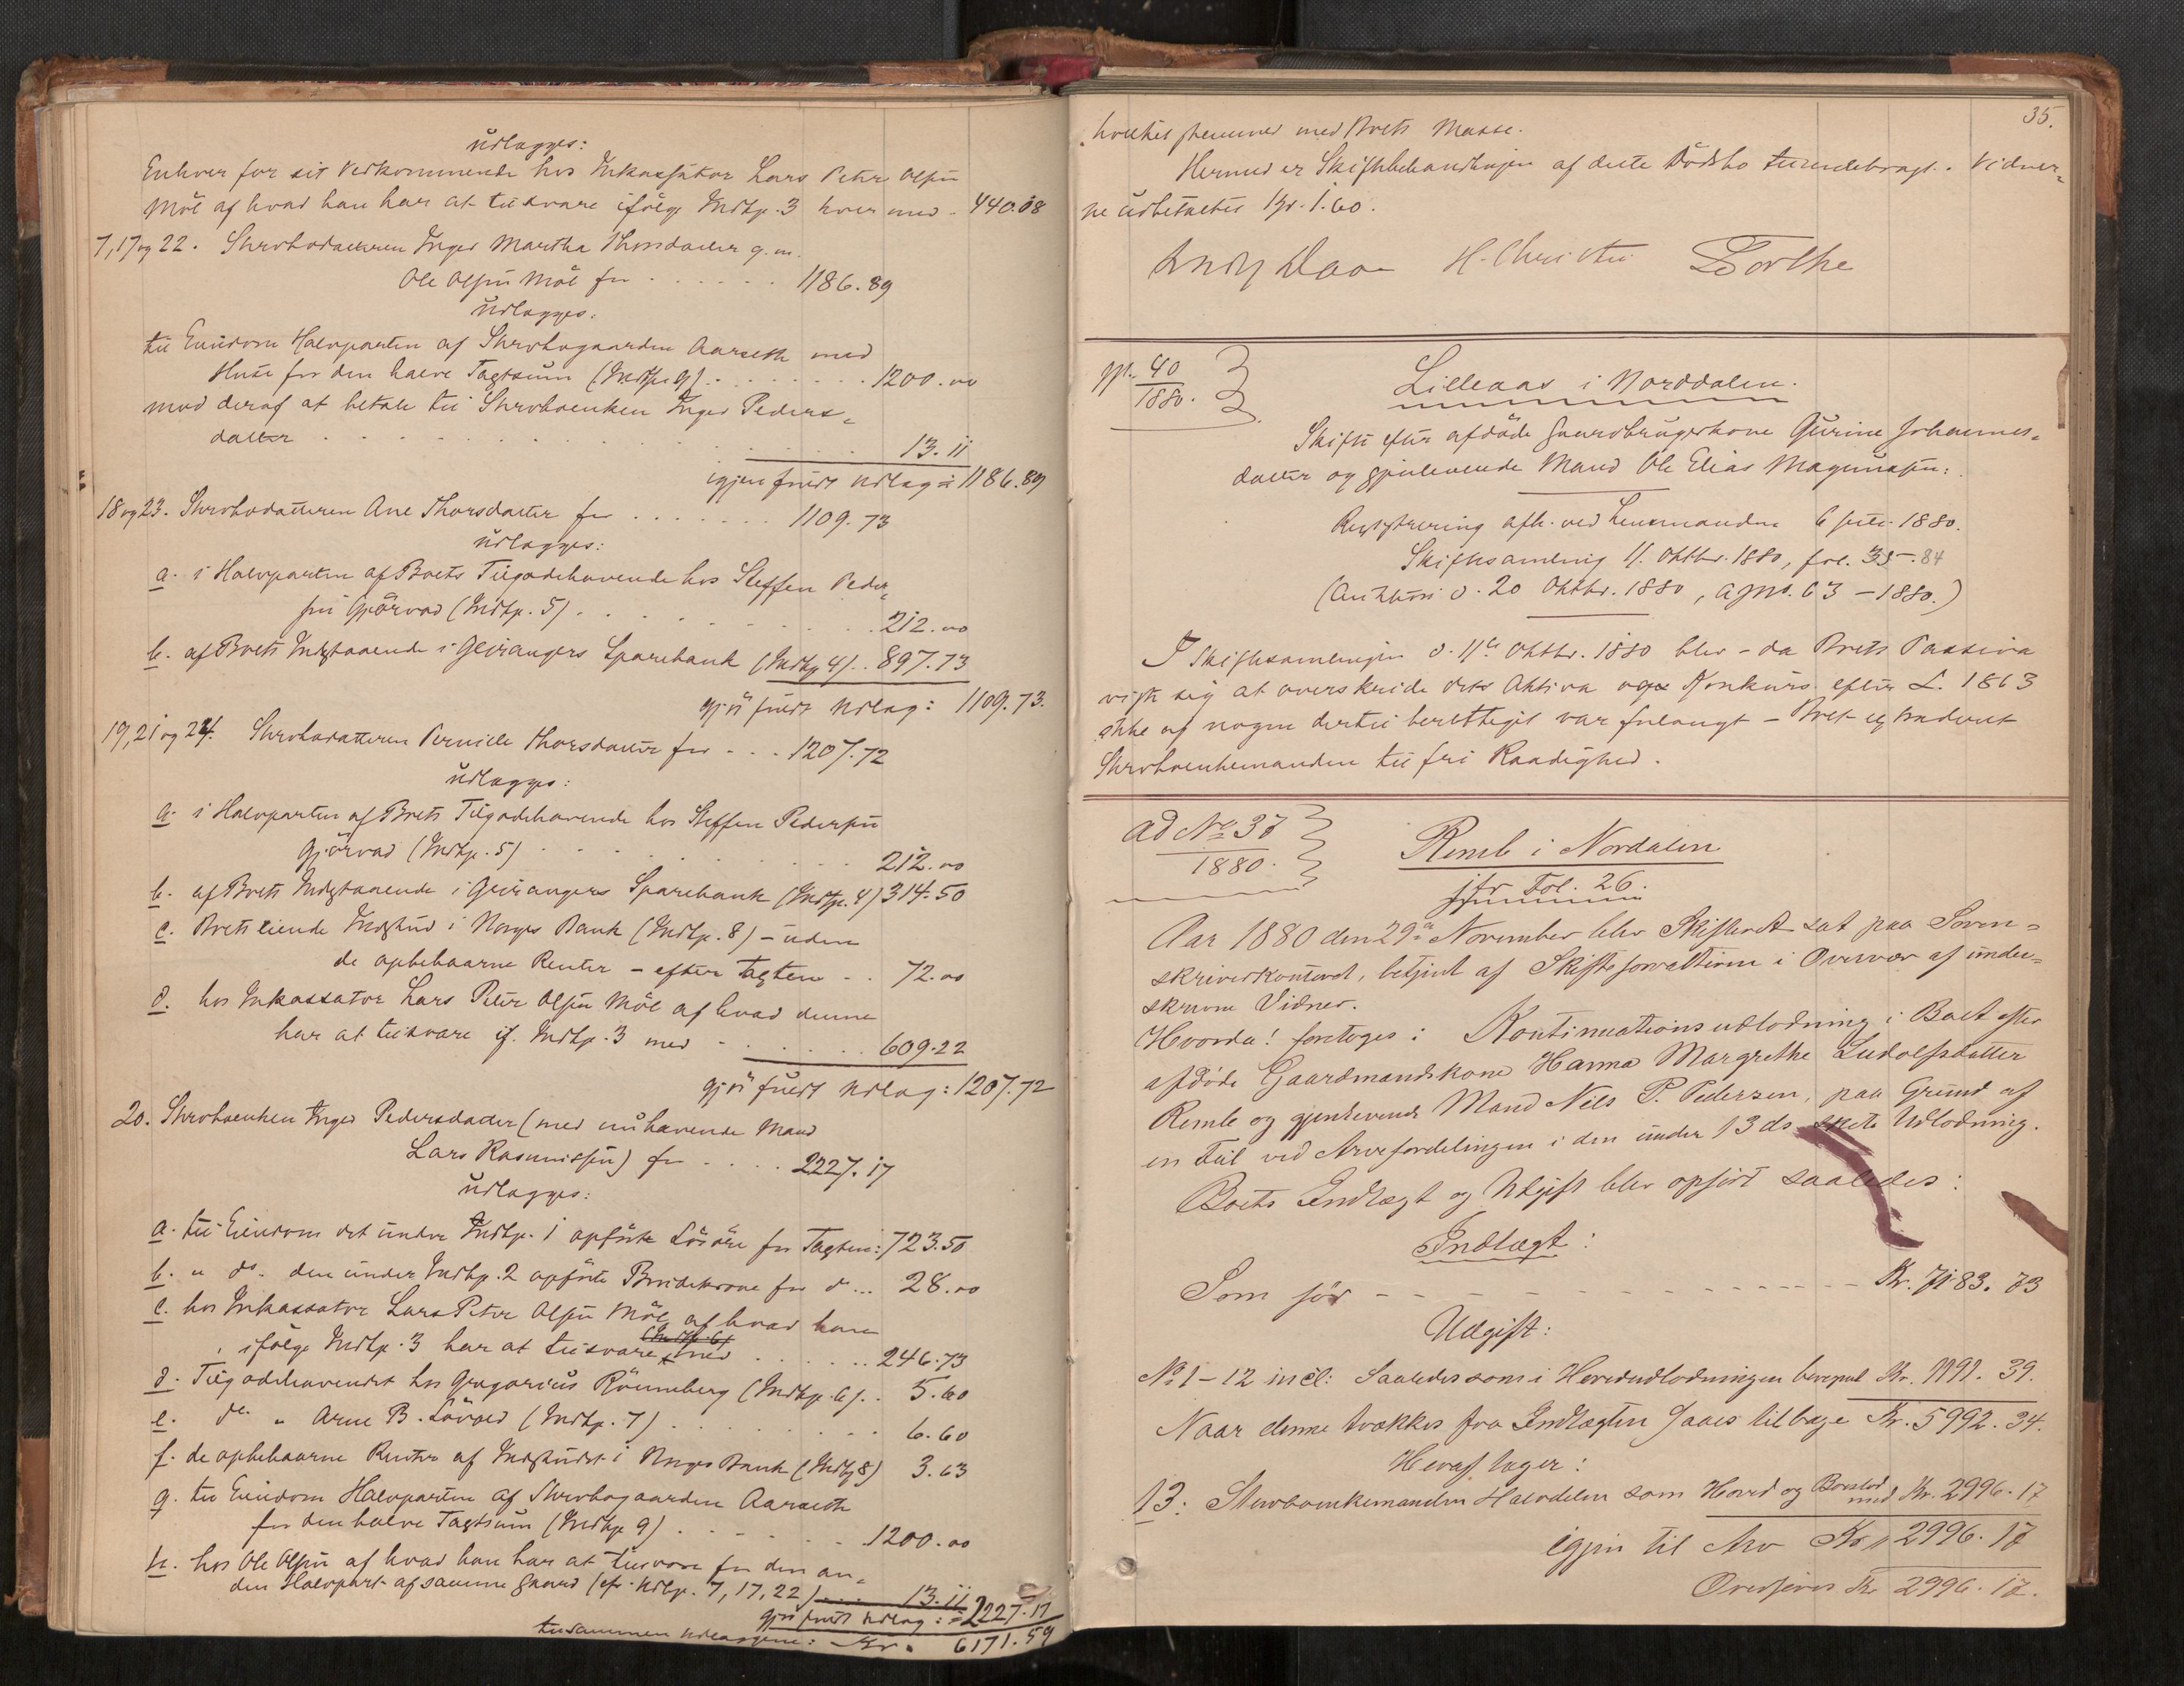 udlægges:
Enhver for sit Vedkommende hos Inkassator Lars Peter Olsen
Möl af hvad han har at tilsvare ifölge Indtp. 3 hver med - 440.08
7, 17 og 22. Stervbodatteren Inger Martha Thorsdatter g. m.
Ole Olsen Möl for . . . . . . 1186.89
udlægges:
til Eiendom Halvparten af Stervbogaarden Aarseth med
Huse for den halve Taxtsum (Indtp. 9) . . . . . . . 1200.00
mod deraf at betale til Stervboenken Inger Peders-
datter . . . . . . . . . . . . . 13.11
igjen fuldt Udlæg = 1186.89
18 og 23. Stervbodatteren Ane Thorsdatter for . . . . . . . 1109.73
udlægges:
a. i Halvparten af Boets Tilgodehavende hos Steffen Peder-
sen Gjörvad (Indtp. 5) . . . . . . . . . 212.00
b. af Boets Indestaaende i Geirangers Sparebank (Indtp 4) . . 897.73
gjör fuldt Udlæg: 1109.73.
19, 21 og 24. Stervbodatteren Pernille Thorsdatter for - - . 1207.72
udlægges:
a. i Halvparten af Boets Tilgodehavende hos Steffen Pedersen
Gjörvad (Indtp. 5) . . . . . . . . . 212.00
b. af Boets Indestaaende i Geirangers Sparebank (Indtp. 4) 314.50
c. Boets eiende Indskud i Norges Bank (Indtp. 8) - uden
de opbebaarne Renter - efter Taxten - . . 72.00
d. hos Inkassator Lars Peter Olsen Möl af hvad denne
har at tilsvare if. Indtp. 3 med - . . . . . . 609.22
gjör fuldt Udlæg: 1207.72
20. Stervboenken Inger Pedersdatter (med nuhavende Mand
Lars Rasmussen) for . . . . 2227.17
udlægges:
a. til Eiendom det under Indtp. 1 opförte Lösöre for Taxten: 723.50
b. " do. den under Indtp. 2 opförte Brudekrone for do ... 28.00
c. hos Inkassator Lars Peter Olsen Möl af hvad han
ifölge Indtp. 3 har at tilsvare med . . . . . . 246.73
d. Tilgodehavendet hos Gregorius Rönneberg (Indtp. 6) . . 5.60
e. do. " Arne B. Lövold (Indtp. 7) . . . . . . . . . 6.60
f. de opbebaarne Renter af Indskudet i Norges Bank (Indtp 8) 3.63
g. til Eiendom Halvparten af Stervbogaarden Aarseth
for den halve Taxtsum (Indtp 9) . . . . . . . 1200.00
h. hos Ole Olsen af hvad han har at tilsvare for den an-
den Halvpart af samme Gaard (cfr. Udtp. 7, 17, 22) . . . 13.11
gjör fuldt Udlæg: = 2227.17
tilsammen udlæggene: Kr. 6171.59
35.
hvilket stemmer med Boets Masse.
Hermed er Skiftebehandlingen af dette Dödsbo tilendebragt. Vidner-
ne udbetaltes Kr. 1.60.
H. Christie
No. 40
1880.
Lilleaas i Norddalen.
Skifte efter afdöde Gaardbrugerkone Gurine Johannes-
datter og gjenlevende Mand Ole Elias Magnussen:
Registrering afh. ved Lensmanden 6 Juli 1880.
Skiftesamling 11. Oktbr. 1880, fol. 35-84
(Anmeldt d. 20 Oktbr. 1880, a No. 63 - 1880.)
I Skiftesamlingen d. 11te Oktbr. 1880 blev - da Boets Passiva
viste sig at overskride dets Aktiva og Konkurs efter L. 1863
ikke af nogen dertil berettiget var forlangt - Boet extraderet
Stervboenkemanden til fri Raadighed.
ad No 37
1880.
Remb i Nordalen
jfr Fol. 26.
Aar 1880 den 29de November blev Skifteret sat paa Soren-
skriverkontoret, betjent af Skifteforvalteren i Overvær af under-
skrevne Vidner.
Hvorda! foretoges: Kontinuationsudlodning i Boet efter
afdöde Gaardmandskone Hanna Margrethe Ludolfsdatter
Remb og gjenlevende Mand Nils P. Pedersen, paa Grund af
en Feil ved Arvefordelingen i den under 13 ds skete Udlodning.
Boets Indtægt og Udgift blev opfört saaledes:
Indtægt:
Som för - - - - - - - - - - Kr. 7183. 73
Udgift:
No 1 - 12 incl: Saaledes som i Hovedudlodningen beregnet Kr. 1191. 39.
Naar denne trækkes fra Indtægten haves tilbage Kr. 5992. 34.
Heraf tager:
13: Stervboenkemanden Halvdelen som Hoved og Boeslod med Kr. 2996.17
igjen til Arv Kr. 2996. 17
Overföres Kr 2996. 17.